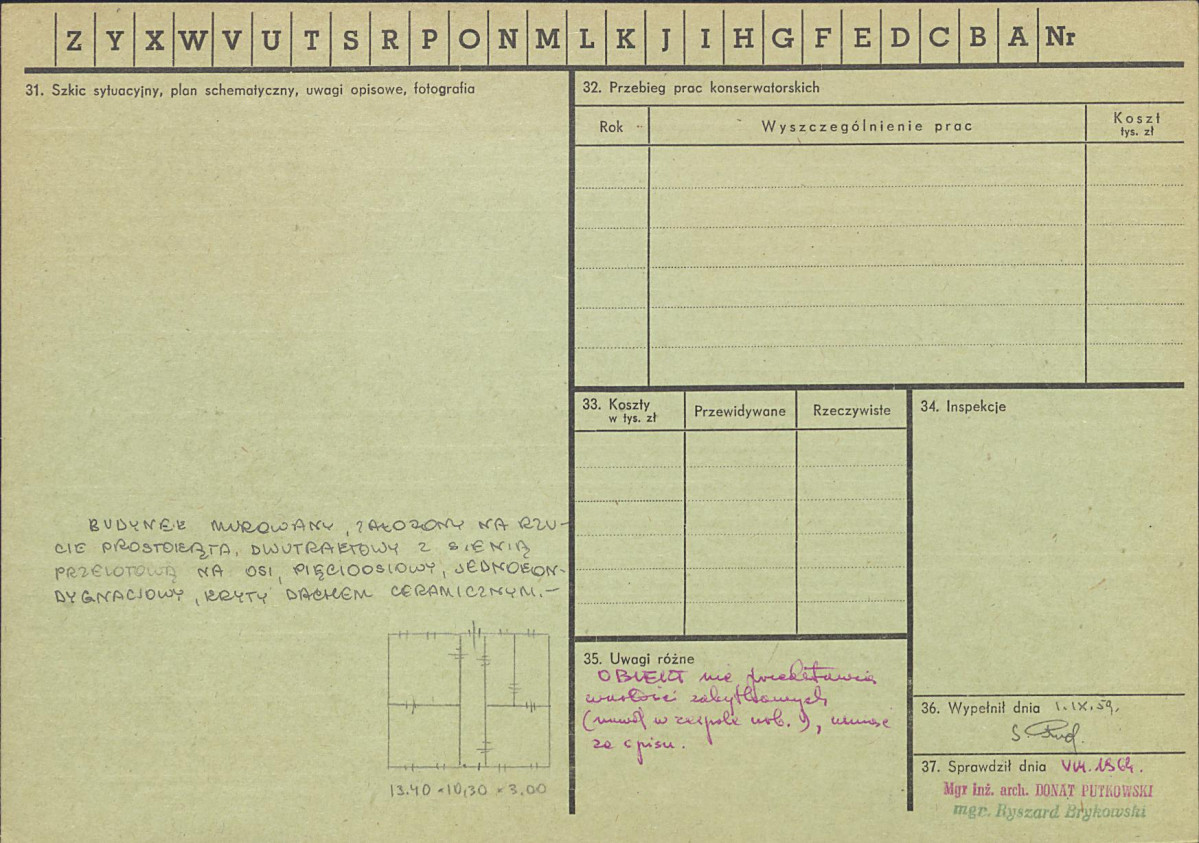 Z Y X W V U T S R P O N M L K J I H G F E D C B A Nr
31. Szkic sytuacyjny, plan schematyczny, uwagi opisowe, fotografia
BUDYNEK MUROWANY, ZAŁOŻONY NA RZU-
CIE PROSTOKĄTA, DWUTRAKTOWY Z SIENIĄ
PRZELOTOWĄ NA OSI, PIĘCIOOSIOWY, JEDNOKON-
DYGNACJOWY, KRYTY DACHEM CERAMICZNYM.—
13.40 × 10,30 × 3,00
32. Przebieg prac konserwatorskich
Rok
Wyszczególnienie prac
Koszt
tys. zł
33. Koszty
w tys. zł
Przewidywane
Rzeczywiste
34. Inspekcje
35. Uwagi różne
OBIEKT nie przedstawia
wartości zabytkowych
w zespole urb.
36. Wypełnił dnia 1.IX.59.
37. Sprawdził dnia
Mgr inż. arch. DONAT PUTKOWSKI
mgr. Ryszard Brykowski